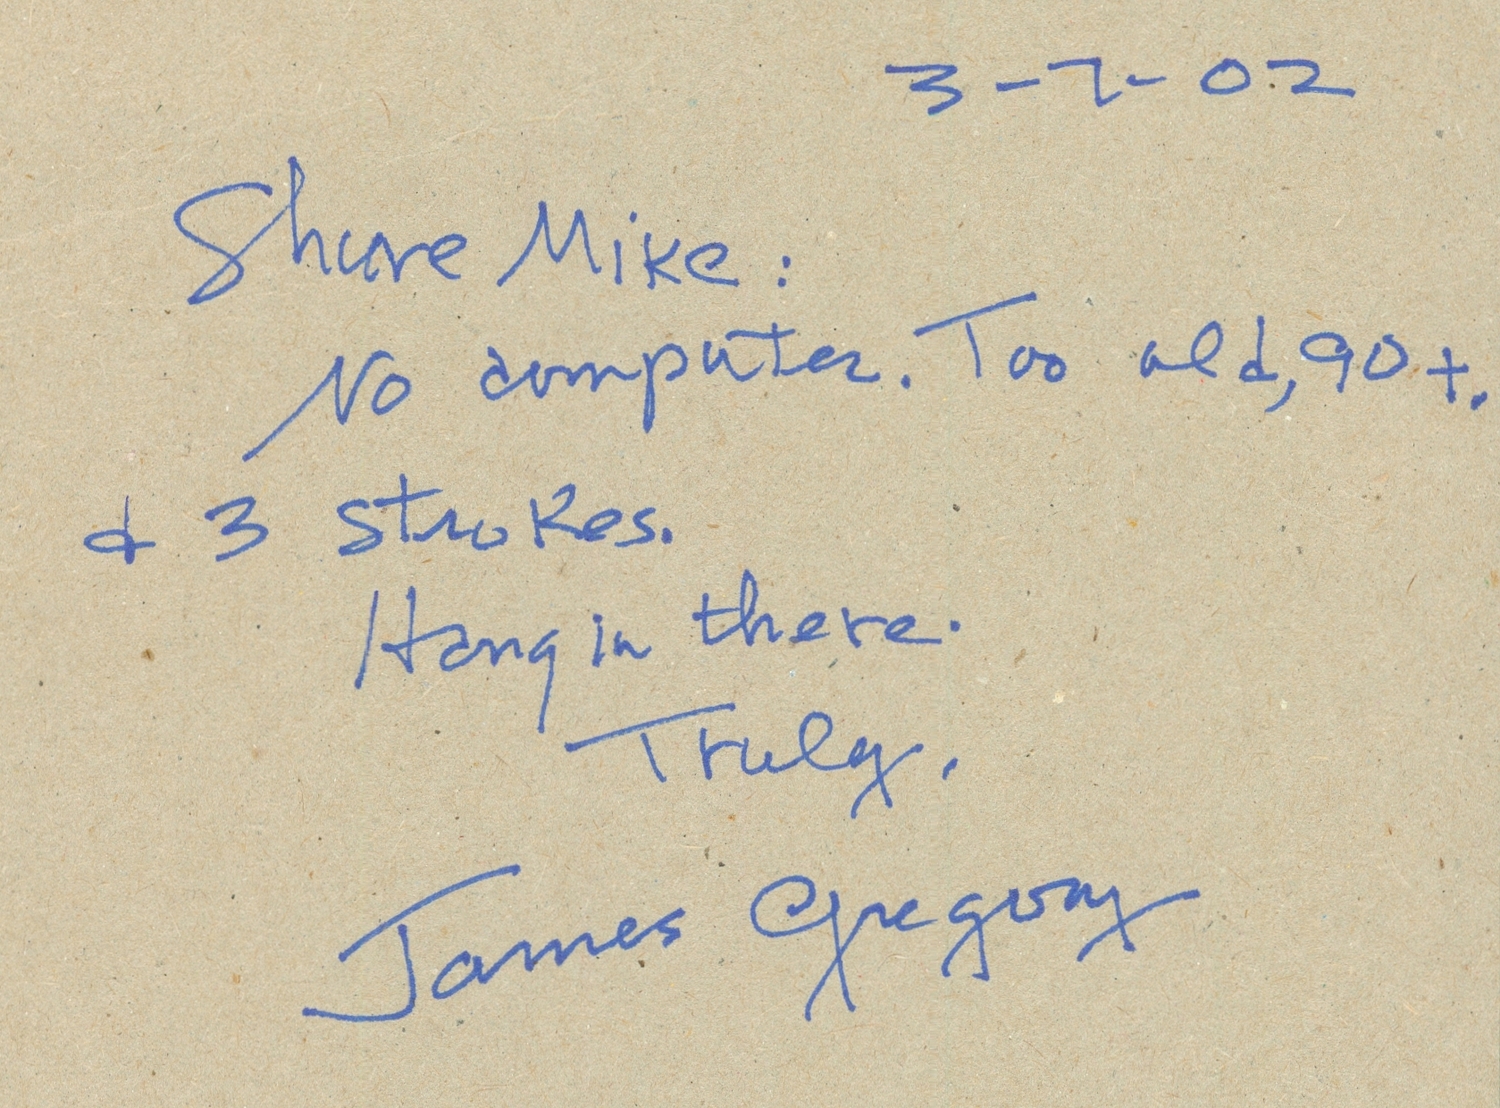 3-7-02
Shure Mike:
No computer. Too old, 90+.
& 3 strokes.
Hang in there.
Truly,
James Gregory